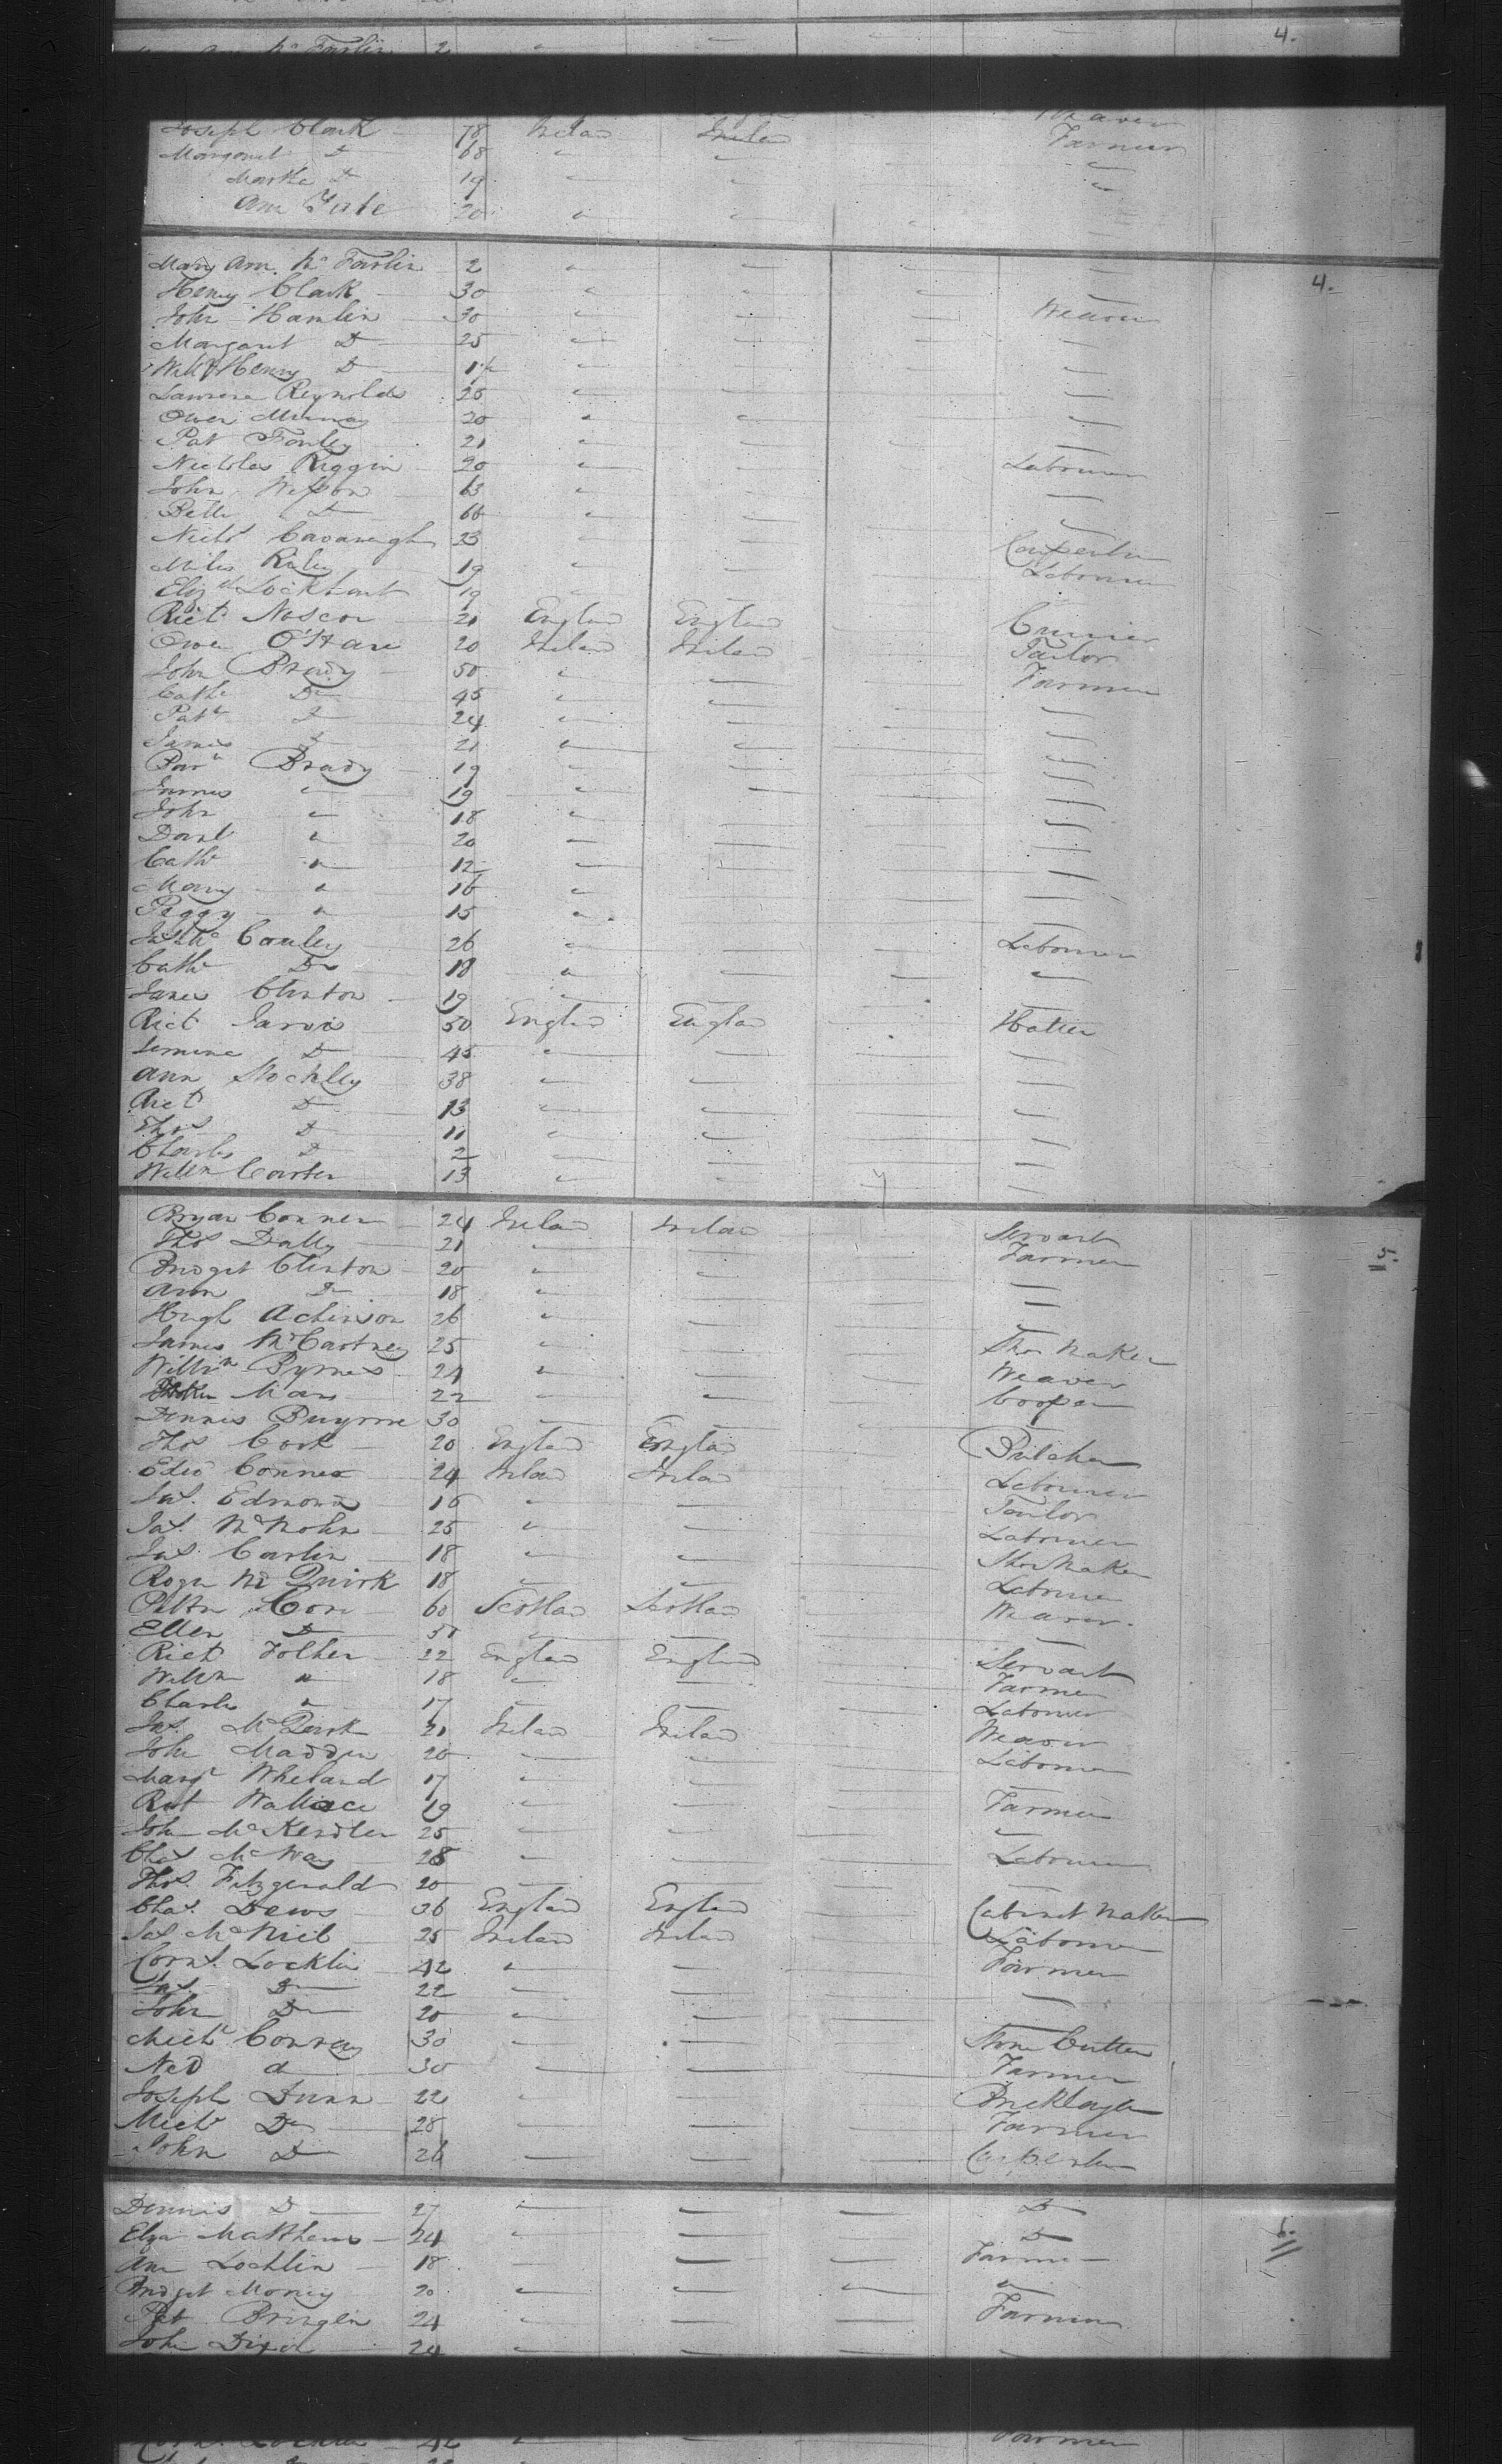 Mary Ann Mc Farlin 2 4.
Joseph Clark 78 Ireland Ireland Farmer
Margaret Do 68 " "
Martha Do 19 " "
Ann Tate 20 " "
Mary Ann Mc Farlin 2 " " 4.
Henry Clark 30 " "
John Hamlin 30 " " Weaver
Margaret Do 25 " "
Willm Henry Do 1½ " "
Laurence Reynolds 25 " "
Owen Murray 20 " "
Pat Fauley 21 " "
Nicholas Riggin 20 " " Labourer
John 63 " "
Do 66 " "
Nichs Cavanaugh 23 " " Carpenter
Miles Riley 19 " " Labourer
Elizth Lockhart 19 " "
Richd 21 England England Currier
Owen O'Hare 20 Ireland Ireland Tailor
John Brady 50 " " Farmer
Cathe Do 45 " "
Patk Do 24 " "
James Do 21 " "
Brady 19 " "
James " 19 " "
John " 18 "
Danl " 20 "
Cathe " 12 "
Mary " 16 "
Peggy " 15 "
Jas Mc Cauley 26 " Labourer
Cathe Do 18 " "
James Clinton 19 "
Richd Jarvis 50 England England Hatter
Do 45 " "
Ann Stockley 38 " "
Richd Do 13 " "
Thos Do 11 " "
Charles Do 2 " "
Willm Carter 13 " "
Bryan Conner 24 Ireland Ireland Servant
Thos Dally 21 " " Farmer 5.
Bridget Clinton 20 " "
Ann Do 18 " "
Hugh Achinson 26 " "
James McCartney 25 " " Shoe Maker
Willm Byrnes 24 " " Weaver
22 " " Cooper
Dennis Buyrne 30 "
Thos Cook 20 England England Butcher
Edwd Conner 24 Ireland Ireland Labourer
Jas. Edmonds 16 " " Tailor
Jas. McMohn 25 " " Labourer
Jas. Carlin 18 " " Shoe Maker
Roger Mc Quirk 18 " " Labourer
60 Scotland Scotland Weaver
Ellen Do
Richd Folher 22 England England Servant
Willm " 18 " " Farmer
Charles " 17 " " Labourer
Jas. McQuirk 21 Ireland Ireland Weaver
John Madden 20 " " Labourer
Margt Wheland 17 " "
Robt Wallace 19 " " Farmer
John McKendler 25 " "
Chas McWay 28 " " Labourer
Thos. Fitzgerald 20
Chas. Dews 36 England England Cabinet Maker
Jas McNiel 25 Ireland Ireland Labourer
Corns. Locklin 42 " " Farmer
Jas. Do 22 " "
John Do 20 " "
Michl Conray 30 " Stone Cutter
Ned do 30 " " Farmer
Joseph Dunn 22 " " Bricklayer
Michl Do 28 " " Farmer
John Do 26 " " Carpenter
Dennis Do 27 " " Do
Eliza Matthews 24 " " Do 6.
Ann Lochlin 18 " " Farmer
Bridget Money 20 " " "
Pat 24 " " Farmer
John Dixon 24 " "
Corns. Locklin 42 " Farmer